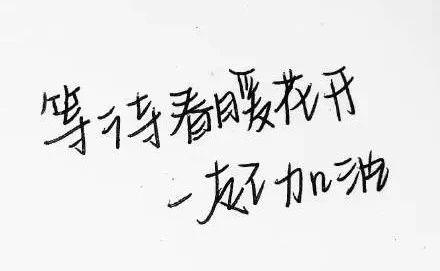 等待春暖花开
一起加油